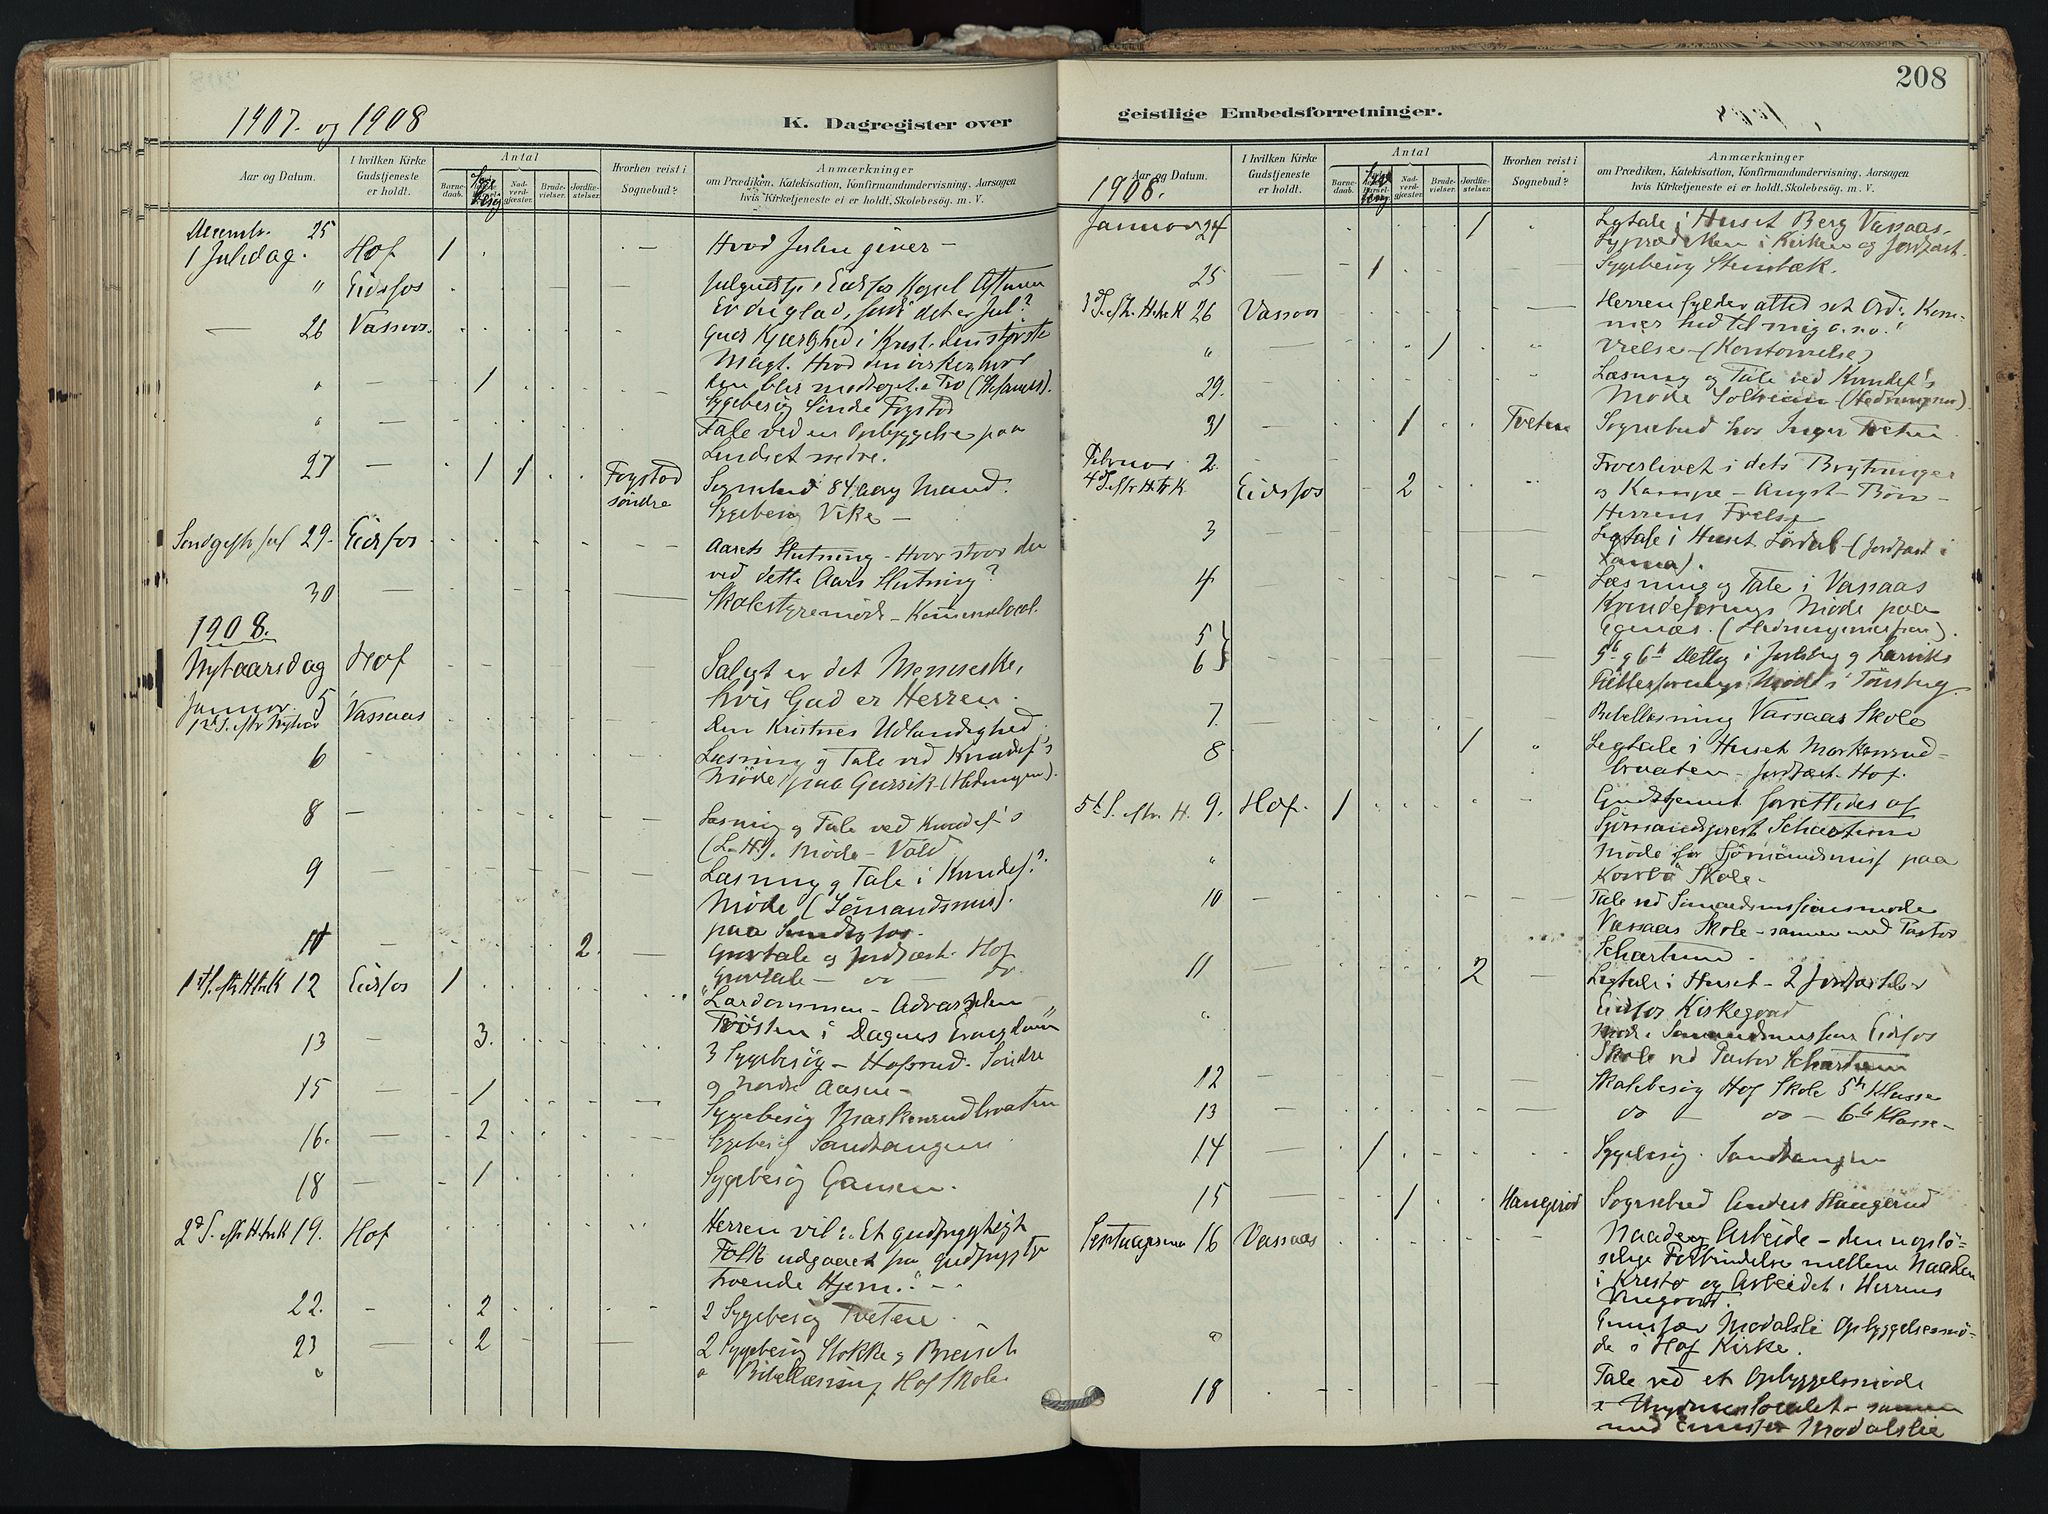 208
1907. og 1908
K. Dagregister over
Aar og Datum.
I hvilken Kirke Gudstjeneste er holdt.
Antal
Barnedaab.
Nadverdgjæster.
Brudevielser.
Jordfæstelser.
Hvorhen reist i Sognebud?
Anmærkninger
om Prædiken, Katekisation, Konfirmandundervisning. Aarsagen
hvis Kirketjeneste ei er holdt, Skolebesøg. m. V.
Decemb. 25
1 Juledag. Hof 1 Hvad Julen giver –
" Eidsfos
Er du glad, fordi det er Jul?
26 Vassaas. Guds Kjærlighed i Krist. den største
Magt. Hvad den virker hvor
den blir modtaget i Tro
1 Sygebesøg Søndre Fogstad
Tale ved en Opbyggelse paa
27 1 1 Fogstad søndre Sognebud 84 aarig Mand.
Sygebesøg Vike –
29. Eidsfos Aarets Slutning – Hvor staar du
ved dette Aars Slutning?
30 Skolestyremöde – Kommunelocal.
1908.
Nytaarsdag Hof Saligt er det Menneske,
hvis Gud er Herren.
Januar 5 Vassaas Den Kristnes Udlændighed
6 Læsning og Tale ved Kvindef's
Møde paa Gussik
8 Læsning og Tale ved Kvindef's
Møde –
9 Læsning og Tale i Kvindef.
Møde (Sømandsmis).
paa Sundbyfos
11 2. Gravtale og Jordfæst. Hof
Gravtale – do do
12 Eidsfos 1 "Lærdommen – Advarselen –
Trösten i Dagens Evangelium"
13 3. 3 Sygebesøg – Hofsrud. Søndre
og Nordre Aasen –
15 1 Sygebesøg Markenrudbraaten
16. 2 Sygebesøg Sandtangen
18 1 Sygebesøg Gansen.
2d S. eftr H.trek 19. Hof Herren vil: "Et gudfrygtigt
Folk udgaaet fra gudfrygtige
troende Hjem." –
22. 2 2 Sygebesøg Tveten
23 2 2 Sygebesøg Stokke og
" Bibellæsning Hof Skole
geistlige Embedsforretninger.
Aar og Datum.
I hvilken Kirke Gudstjeneste er holdt.
Antal
Barnedaab.
Nadverdgjæster.
Brudevielser.
Jordfæstelser.
Hvorhen reist i Sognebud?
Anmærkninger
om Prædiken, Katekisation, Konfirmandundervisning. Aarsagen
hvis Kirketjeneste ei er holdt, Skolebesøg. m. V.
1908.
Januar 24 1 Ligtale i Huset Berg Vassaas.
Ligprædiken i Kirken og Jordfæst.
25 1 Sygebesøg Stenbæk.
26 Vassaas Herren fylder altid sit Ord: Kommer
hid til mig o.s.v."
" 1 Vielse – (Kontorvielse)
29. Læsning og Tale ved Kvindef's
Møde
31 1 Tveten Sognebud hos Inger Tveten
Februar 2.
4 S. eftr H.tr.K Eidsfos 2 Troeslivet i dets Brytninger
og Kampe – Angst – Bøn –
Herrens Frelse
3 Ligtale i Huset Lørdal – (Jordfæst i
4 Læsning og Tale i Vassaas
Kvindeforenings Møde paa
5 }
6 } 5te og 6te Deltog i Jarlsberg og Larviks
Møde i Tönsberg.
7. Bibellæsning Vassaas Skole
8 1 Ligtale i Huset Markenrud-
braaten – Jordfæst. Hof.
5te S. eftr. H. 9. Hof. 1 Gudstjenest forrettedes af
Sjømandsprest Schartum
" Møde for Sjømandsmis paa
Skole –
10 Tale ved Sømandsmissionsmøde
Vassaas Skole – sammen med Pastor
Schartum.
11 2 Ligtale i Huset – 2 Jordfæstelser
Eidsfos Kirkegaard
" Møde i Sømandsmission Eidsfos
Skole ved Pastor Schartum
12 Skolebesøg Hof Skole 5te Klasse
13 do – do – 6te Klasse –
14 1 Sygebesøg. Sandtangen
15 1 Haugerød Sognebud Anders Haugerud
Septuagesima 16 Vassaas Naade og Arbeide – den uoplöselige
Forbindelse mellem Naaden
i Kristo og Arbeidet i Herrens
Vingaard.
" Modalsli Opbyggelsesmøde
i Hof Kirke.
18 Tale ved et Opbyggelsmøde
i Ungdomslocalet – sammen
med Modalslie